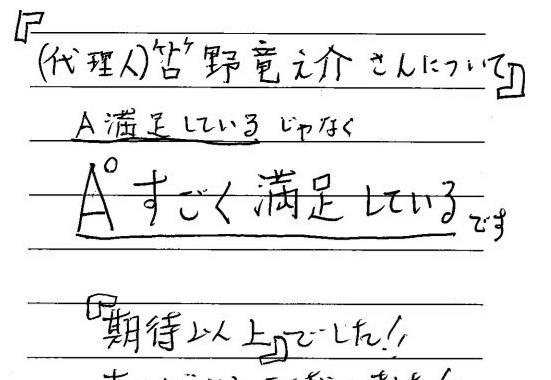 『(代理人)笘野竜之介さんについて』
A 満足している じゃなく
A° すごく満足しているです
『期待以上』でした!!